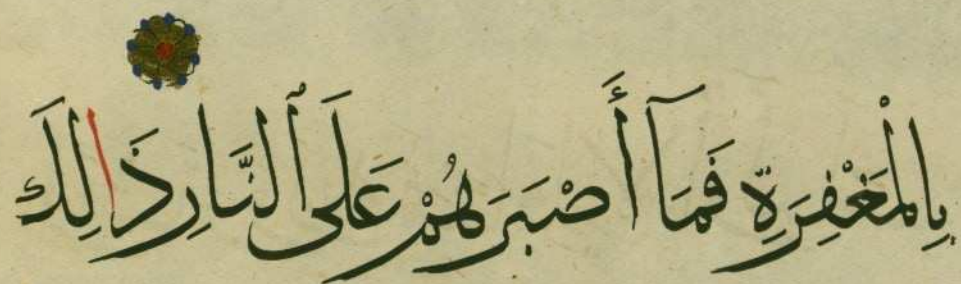 بِالْمَغْفِرَةِ فَمَآ أَصْبَرَهُمْ عَلَى ٱلنَّارِ ذَالِكَ